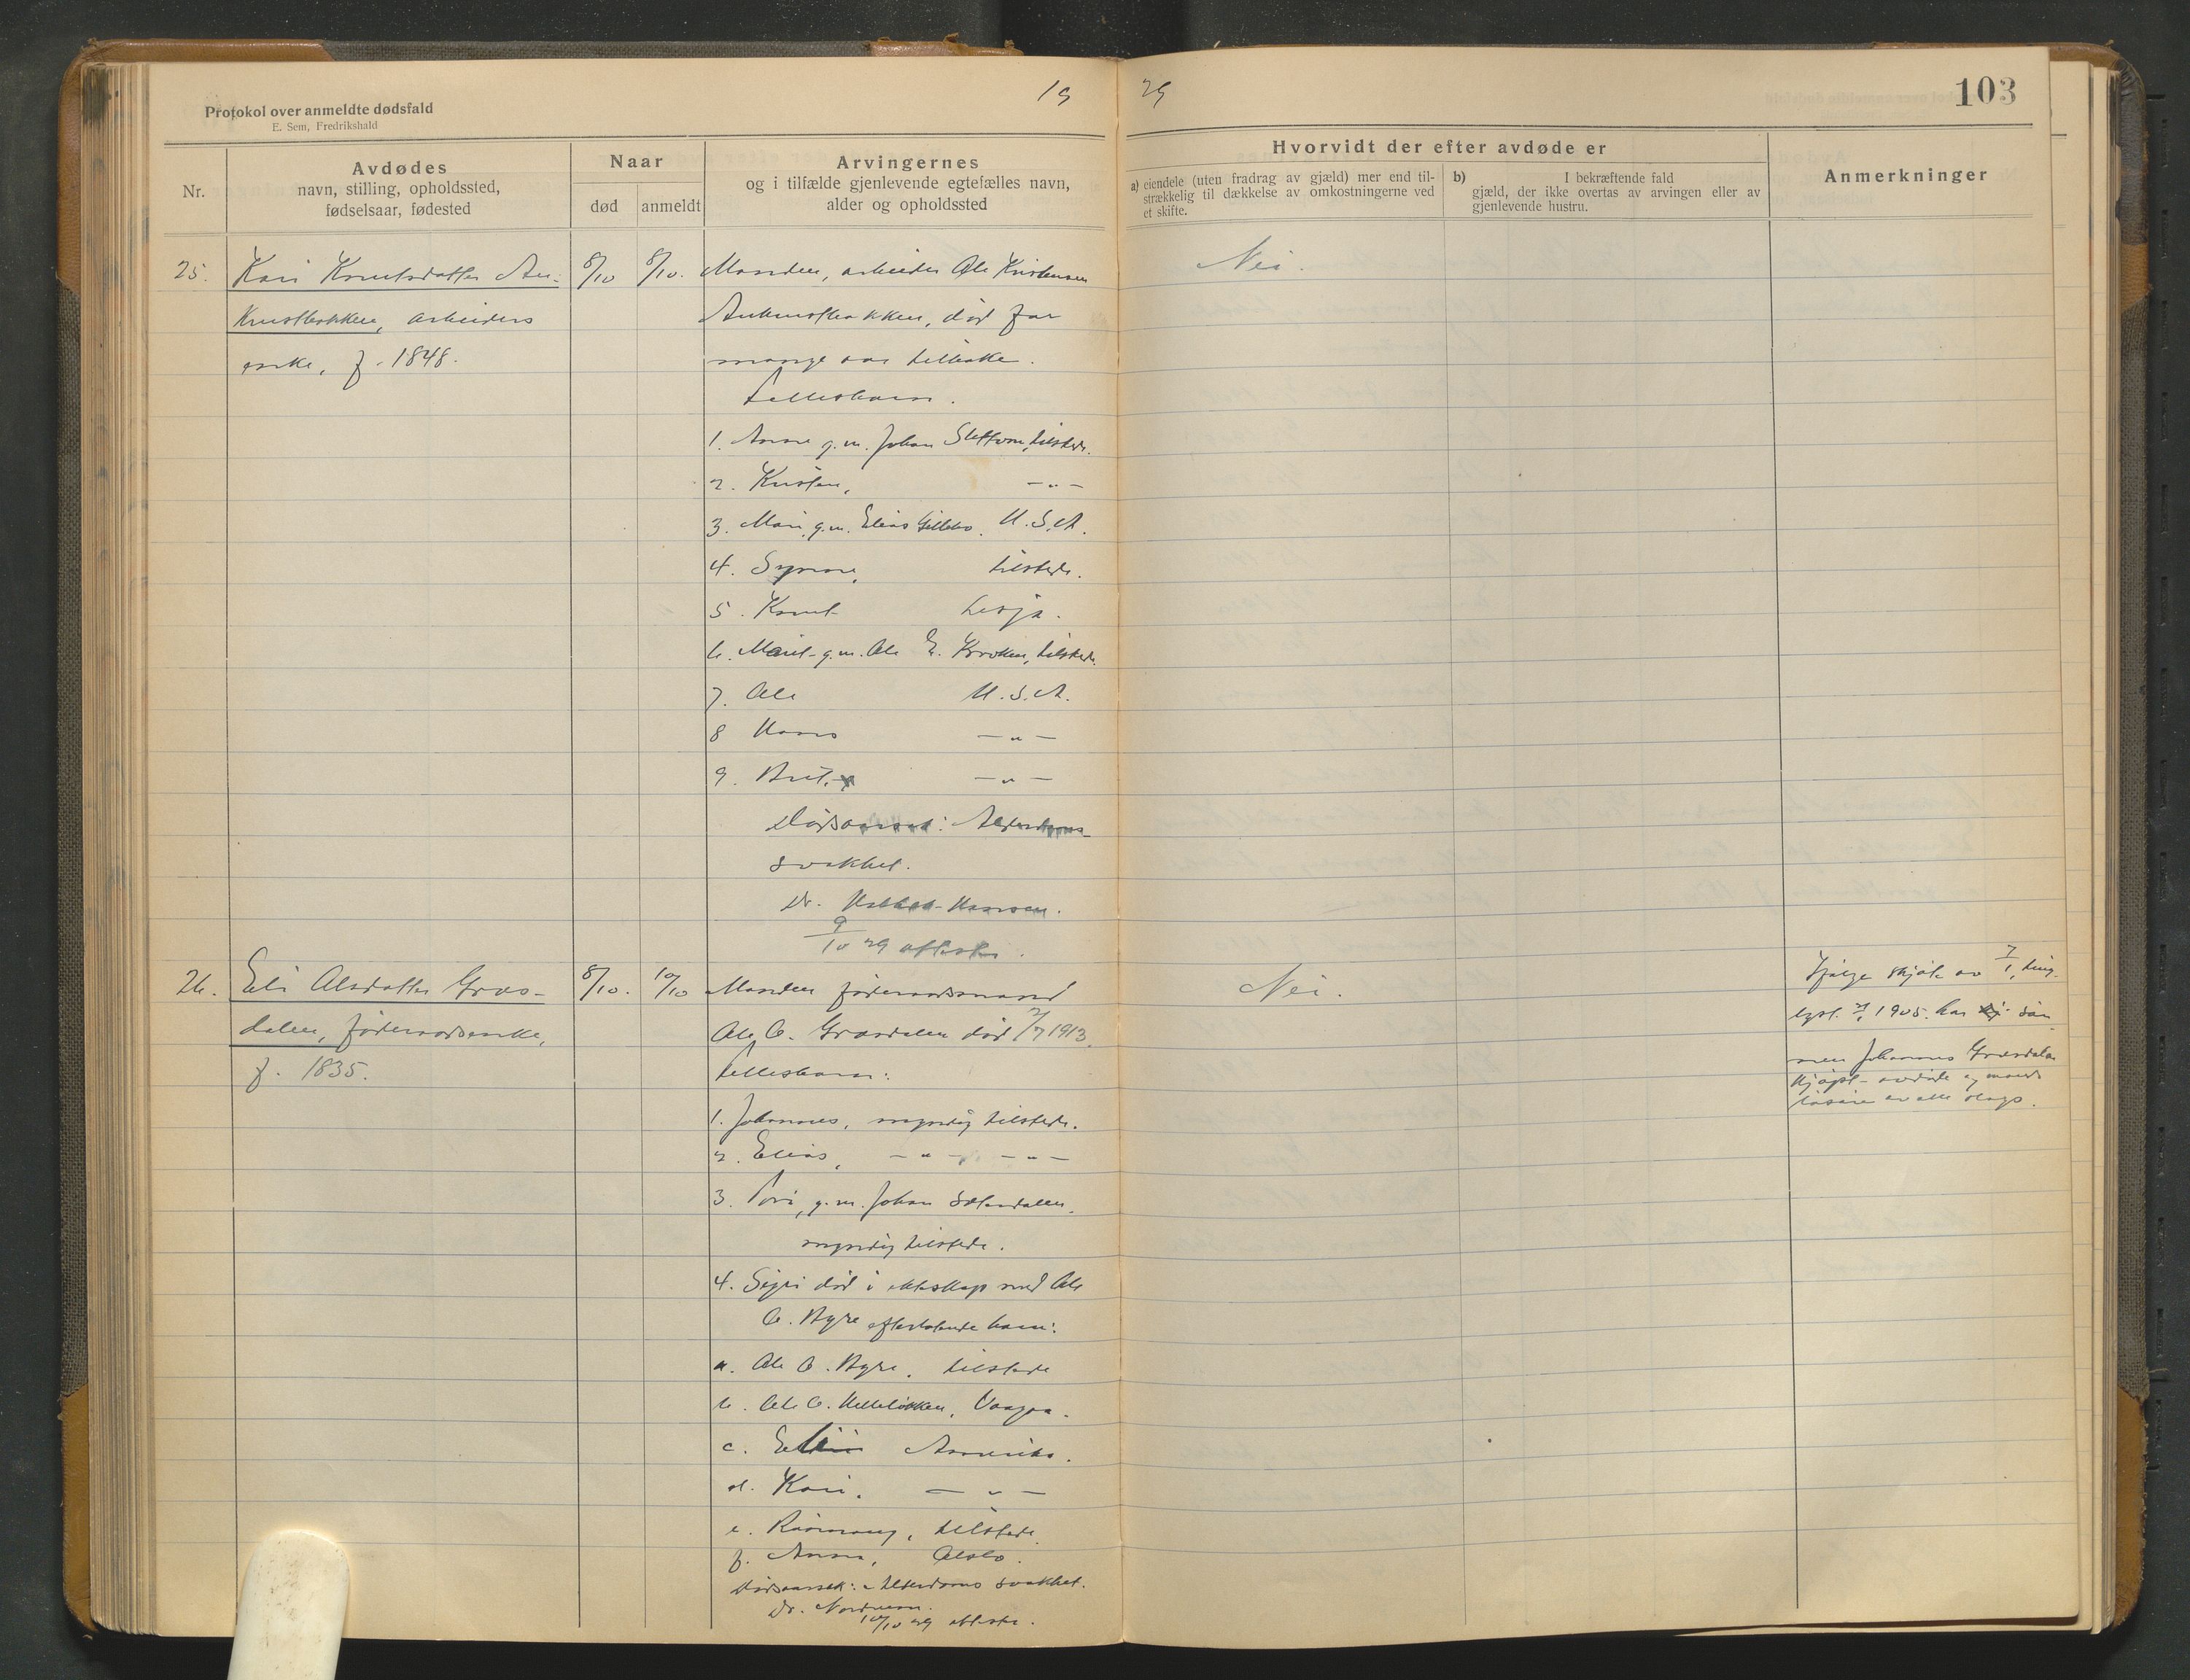 Protokol over anmeldte dødsfald
E. Sem, Fredrikshald
19
29
103
Nr.
Avdødes
navn, stilling, opholdssted,
fødselsaar, fødested
Naar
død
anmeldt
Arvingernes
og i tilfælde gjenlevende egtefælles navn,
alder og opholdssted
Hvorvidt der efter avdøde er
a) eiendele (uten fradrag av gjæld) mer end til-
strækkelig til dækkelse av omkostningerne ved
et skifte.
b) I bekræftende fald
gjæld, der ikke overtas av arvingen eller av
gjenlevende hustru.
Anmerkninger
25.
Kari Knutsdatter An-
knustbakken, arbeiders
enke, f. 1848.
8/10
8/10.
Manden, arbeider Ole Kristensen
Anknustbakken, død for
mange aar tilbake.
Fellesbarn.
1. Anne g.m. Johan Slettom, tilstede.
2. Kristen, -"-
3. Mari, g.m. Elias Gillebo. U.S.A.
4. Synne, tilstede.
5. Knut Lesja.
6. Marit g.m. Ole E. Kroken, tilstede.
7. Ole U.S.A.
8 Hans -"-
9. Brit. -"-
Dødsaarsak: Alderdoms-
svakhet.
Dr. Hansen.
9/10 29 attester.
Nei.
26.
Eli Olsdatter Græs-
dalen, føderaadsenke,
f. 1835.
8/10.
10/10
Manden føderaadsmand
Ole O. Græsdalen død 1913.
Fellesbarn:
1. Johannes, myndig tilstede.
2. Elias, -"- -"-
3. Torø, g.m. Johan
myndig tilstede.
4. Sigri død i ekteskap med Ole
O. Byre efterlatende barn:
a. Ole O. Byre, tilstede
b. Ole O. Vaagaa.
c. Eli Amerika.
d. Kari. -"-
e. tilstede
f. Anna, Oslo.
Dødsaarsak: Alderdoms svakhet.
Dr.
10/10 29 attester.
Nei.
Ifølge skjøte av 7/1, ting-
lyst 1905. har søn-
nen Johannes Græsdalen
kjøpt avdøde og mands
løsøre av alle slags.